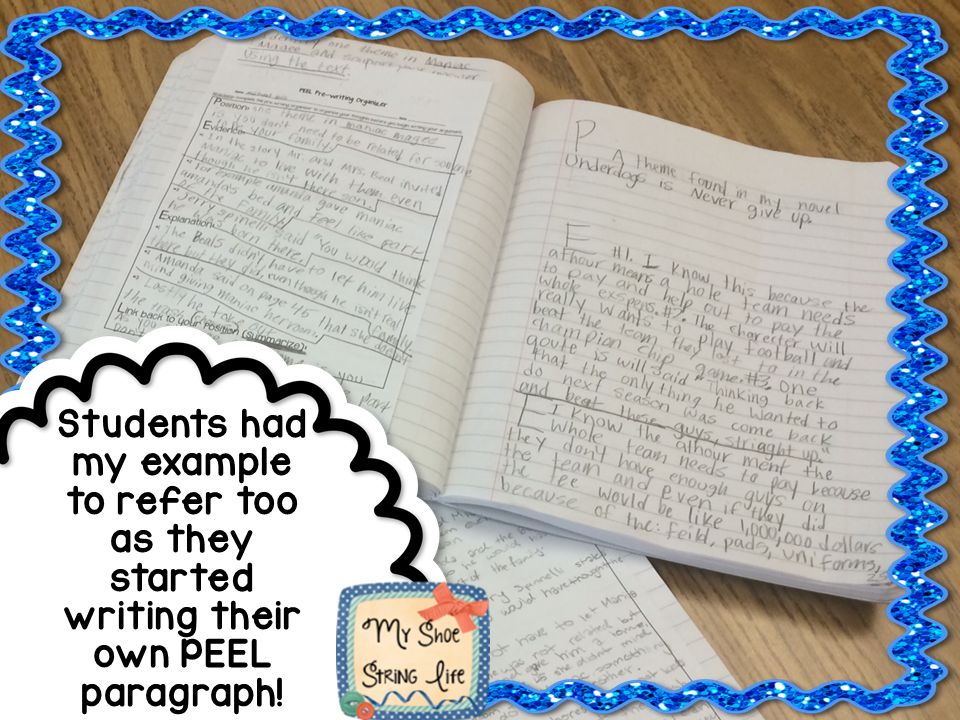 identify one theme in Maniac
Magee and support your answer
using the text.
PEEL Pre-writing Organizer
Position: One theme in Maniac Magee
is you don't need to be related for someone
to be your family.
Evidence:
In the story Mr. and Mrs. Beal invited
Maniac to live with them, even
though he isn't there son.
For example amanda gave maniac
amandas bed and feel like part
of family
Jerry spinelli said "You would think
he was born there."
Explanation:
The Beals didn't have to let him live
there but they did, even though he isn't real
family
Amanda said on page 45 that she didn't
mind giving maniac her room.
Lastly he
the trash
Link back to your position (summarize):
As you
P A theme found in my novel
Underdogs is Never give up.
E #1. I know this because the
athour means a hole team needs
to pay and help out to pay the
whole exspens. #2. The charecter will
really wants to play football and
beat the team they lost to in the
champion chip game. #3. One
qoute is will said "Thinking back
that the only thing he wanted to
do next season was come back
and beat these guys, striaght up."
E I know the athour ment the
whole team needs to pay because
they don't have enough guys on
the team and even if they did
the fee would be like 1,000,000 dollars
because of the: feild, pads, uniforms,
Students had
my example
to refer too
as they
started
writing their
own PEEL
paragraph!
My Shoe
String Life